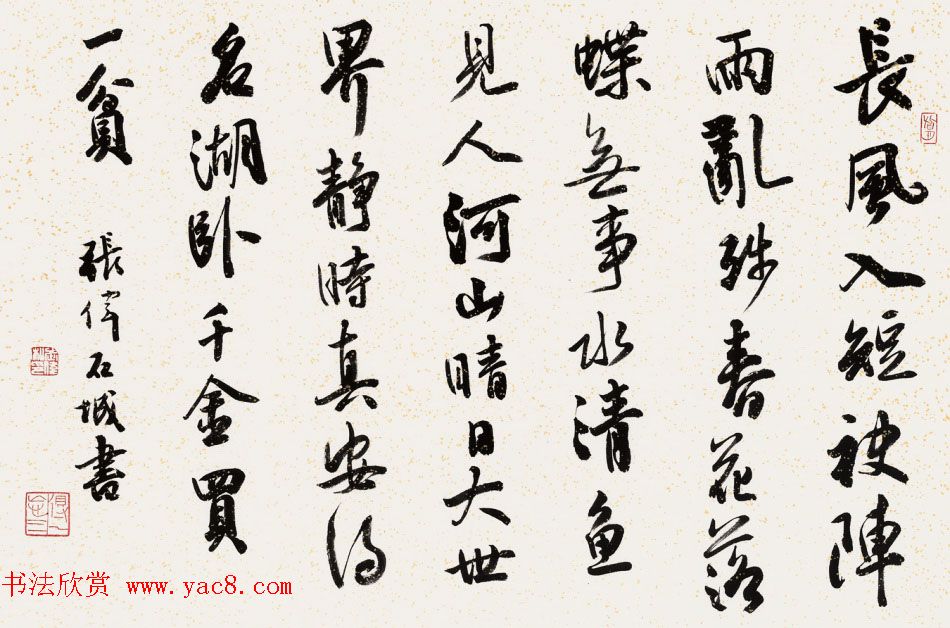 長風入短袂陣
雨亂殘春花落
蝶無事水清鱼
見人河山晴日大世
界静時真安得
名湖卧千金買
一貧
張偉石城書
书法欣赏 www.yac8.com